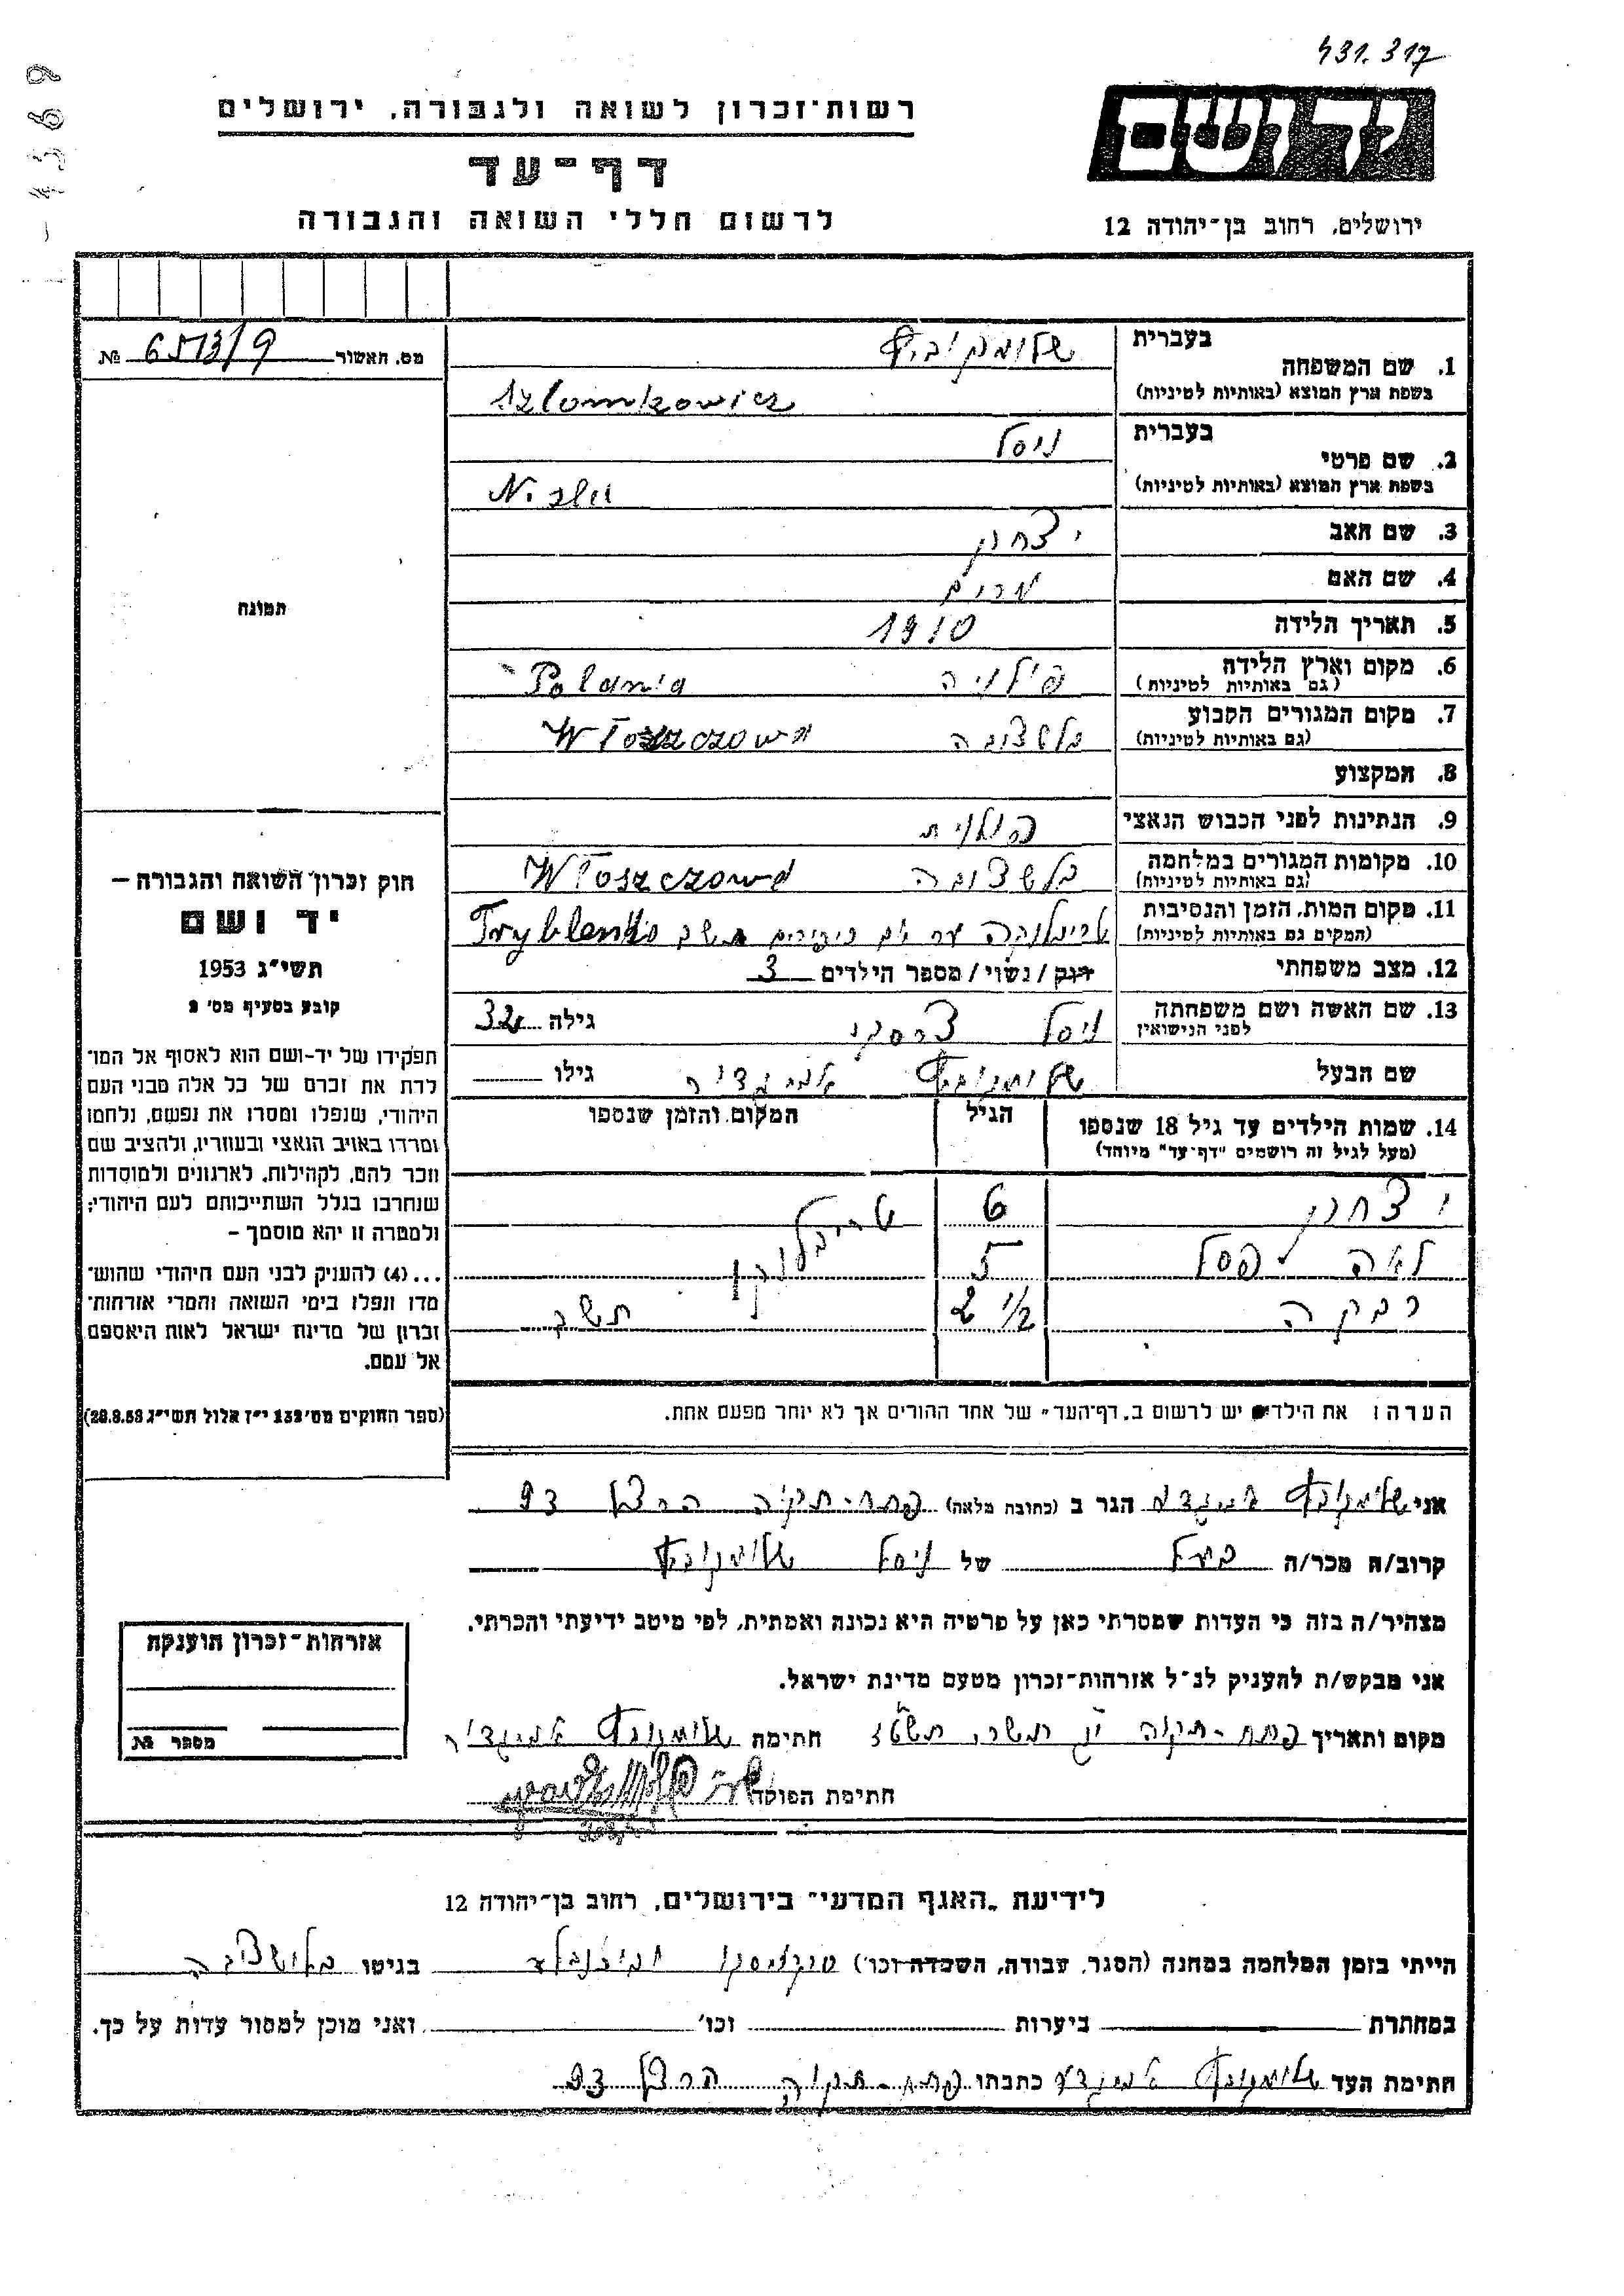 431.317
רשות־זכרון לשואה ולגבורה, ירושלים
דף־עד
לרשום חללי השואה והגבורה
יד ושם
ירושלים, רחוב בן־יהודה 12
מס. האשור 6573/9 №
1. שם המשפחה בעברית שלומקוביץ
בשפת ארץ המוצא (באותיות לטיניות) Szlomkowicz
2. שם פרטי בעברית ניסל
בשפת ארץ המוצא (באותיות לטיניות)
3. שם האב יצחק
4. שם האם מרים
5. תאריך הלידה 1910
6. מקום וארץ הלידה פולניה Polania
(גם באותיות לטיניות)
7. מקום המגורים הקבוע בלשצובה Wloszczowa
(גם באותיות לטיניות)
8. המקצוע
9. הנתינות לפני הכבוש הנאצי פולנית
10. מקומות המגורים במלחמה בלשצובה Wloszczowa
(גם באותיות לטיניות)
11. מקום המות, הזמן והנסיבות טרינלובקה ער יום כיפורים תשב Tryblenko
(המקום גם באותיות לטיניות)
12. מצב משפחתי רוק / נשוי / מספר הילדים 3
13. שם האשה ושם משפחתה ניסל גילה 32
לפני הנישואין
שם הבעל שלומקוביץ אביגדור גילו
14. שמות הילדים עד גיל 18 שנספו הגיל המקום והזמן שנספו
(מעל לגיל זה רושמים "דף־עד" מיוחד)
יצחק 6
לאה פסל 5
רבקה 2 1/2 תשב
הערה: את הילדים יש לרשום ב„דף־העד" של אחד ההורים אך לא יותר מפעם אחת.
תמונה
חוק זכרון השואה והגבורה —
יד ושם
תשי״ג 1953
קובע בסעיף מס׳ 2
תפקידו של יד-ושם הוא לאסוף אל המו־
לדת את זכרם של כל אלה מבני העם
היהודי, שנפלו ומסרו את נפשם, נלחמו
ומרדו באויב הנאצי ובעוזריו, ולהציב שם
וזכר להם, לקהילות, לארגונים ולמוסדות
שנחרבו בגלל השתייכותם לעם היהודי;
ולמטרה זו יהא מוסמך —
...(4) להעניק לבני העם היהודי שהוש־
מדו ונפלו בימי השואה והמרי אזרחות־
זכרון של מדינת ישראל לאות היאספם
אל עמם.
(ספר החוקים מס׳ 132 י״ז אלול תשי״ג 28.8.53)
אני שלומקוביץ אביגדור הגר ב (כתובת מלאה) פתח-תקוה הרצל 93
קרוב/ה מכר/ה בעל של ניסל שלומקוביץ
מצהיר/ה בזה כי העדות שמסרתי כאן על פרטיה היא נכונה ואמתית, לפי מיטב ידיעתי והכרתי.
אני מבקש/ת להעניק לנ״ל אזרחות־זכרון מטעם מדינת ישראל.
מקום ותאריך פתח-תקוה תשרי חתימה שלומקוביץ אביגדור
חתימת הפוקד
אזרחות־זכרון הוענקה
מספר №
לידיעת „האגף המדעי" בירושלים, רחוב בן־יהודה 12
הייתי בזמן המלחמה במחנה (הסגר, עבודה, השמדה וכו׳) בוכנבלד בגיטו בלושצובה
במחתרת ביערות וכו׳ ואני מוכן למסור עדות על כך.
חתימת העד שלומקוביץ אביגדור כתבתו פתח-תקוה הרצל 93